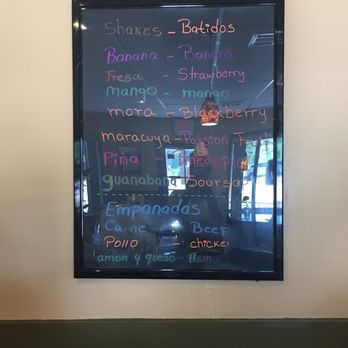 Shakes - Batidos
Banana - Banana
Fresa - Strawberry
mango - mango
mora - Blackberry
maracuya - Passion
Piña -
guanabana Soursop
Empanadas
Carne Beef
Pollo - chicken
amon y queso - Ham